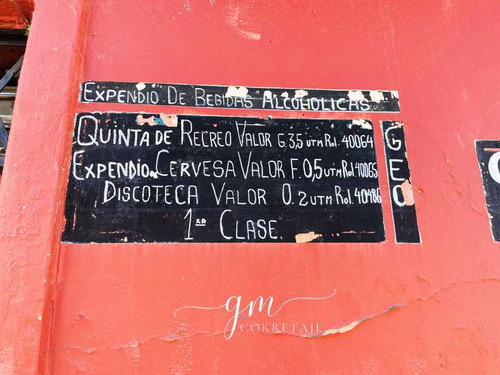 EXPENDIO DE BEBIDAS ALCOHOLICAS
QUINTA DE RECREO VALOR G 3,5 UTM Rol 40064
EXPENDIO CERVESA VALOR F. 0,5 UTM Rol 40065
DISCOTECA VALOR O. 2 UTM Rol 40486
1RD CLASE
G
E
O
gm
CORRETAJE